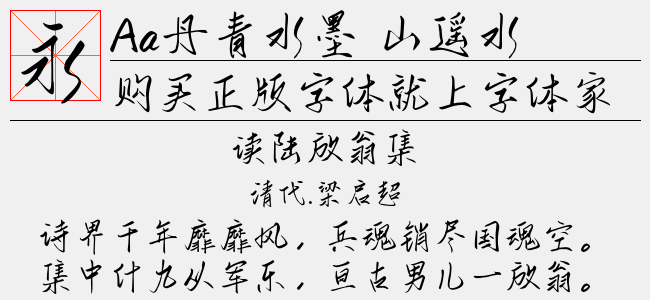 永
Aa丹青水墨 山遥水
购买正版字体就上字体家
读陆放翁集
清代.梁启超
诗界千年靡靡风，兵魂销尽国魂空。
集中什九从军乐，亘古男儿一放翁。